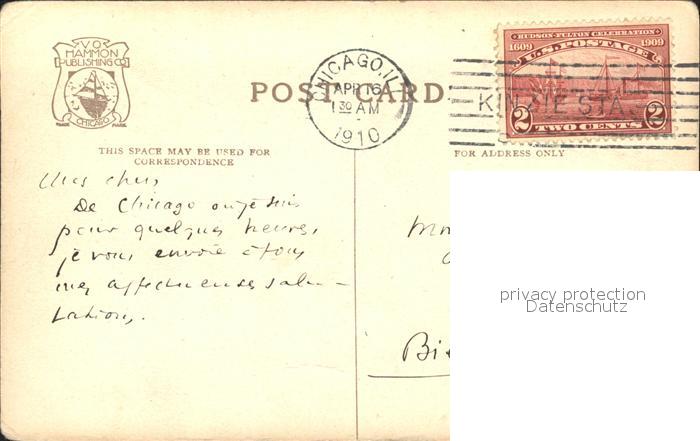 V.O.
HAMMON
PUBLISHING CO
CHICAGO
TRADE MARK
POST CARD
CHICAGO, ILL
APR 16
1 30 AM
1910
HUDSON-FULTON CELEBRATION
1609 1909
U.S. POSTAGE
KINZIE STA.
2 TWO CENTS 2
THIS SPACE MAY BE USED FOR
CORRESPONDENCE
FOR ADDRESS ONLY
Mes chers
De Chicago où je suis
pour quelques heures,
je vous envoie à tous
mes affectueuses salu-
tations.
privacy protection
Datenschutz